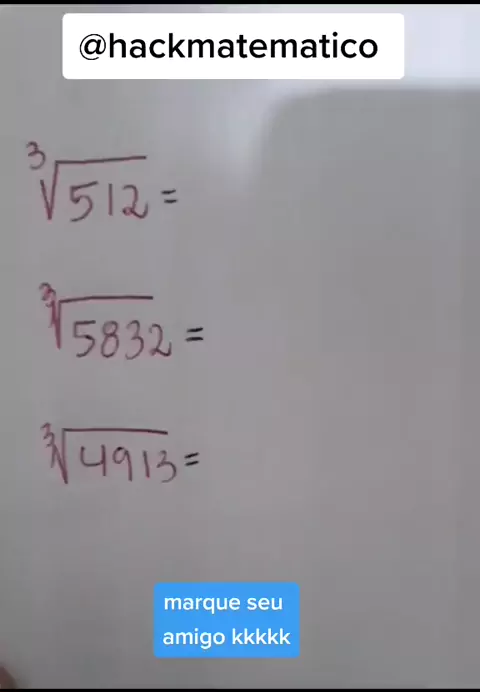 @hackmatematico
∛512 =
∛5832 =
∛4913 =
marque seu
amigo kkkkk